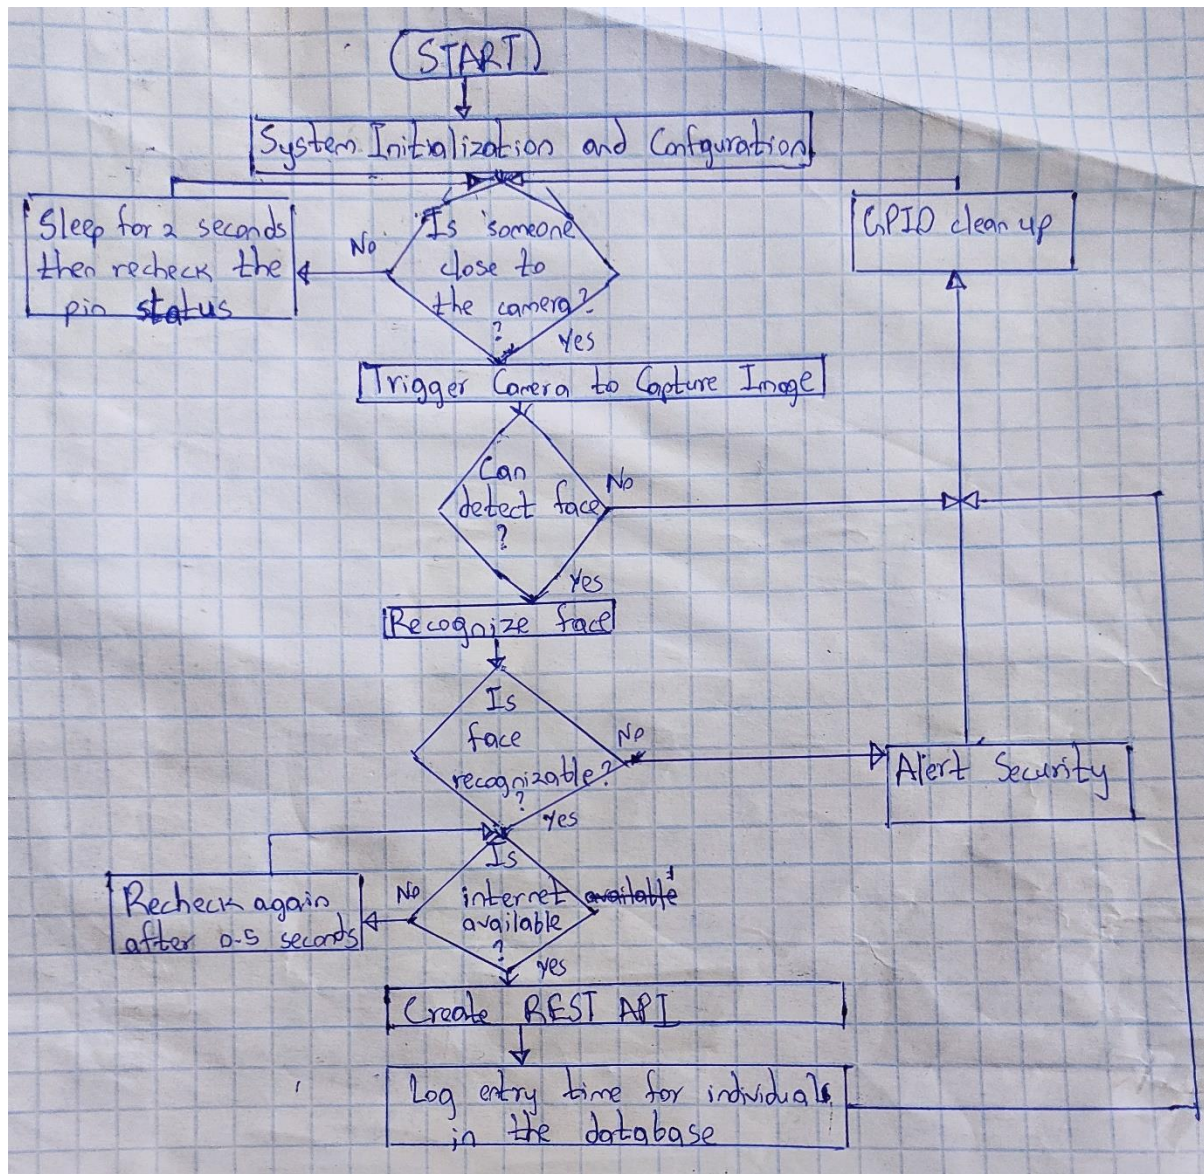 START
System Initialization and Configuration
Sleep for 2 seconds
then recheck the
pin status
No
Is someone
close to
the camera?
?
Yes
GPIO clean up
Trigger Camera to Capture Image
Can
detect face
?
No
Yes
Recognize face
Is
face
recognizable?
?
No
Yes
Alert Security
Recheck again
after 0.5 seconds
No
Is
internet available
available
?
Yes
Create REST API
Log entry time for individuals
in the database